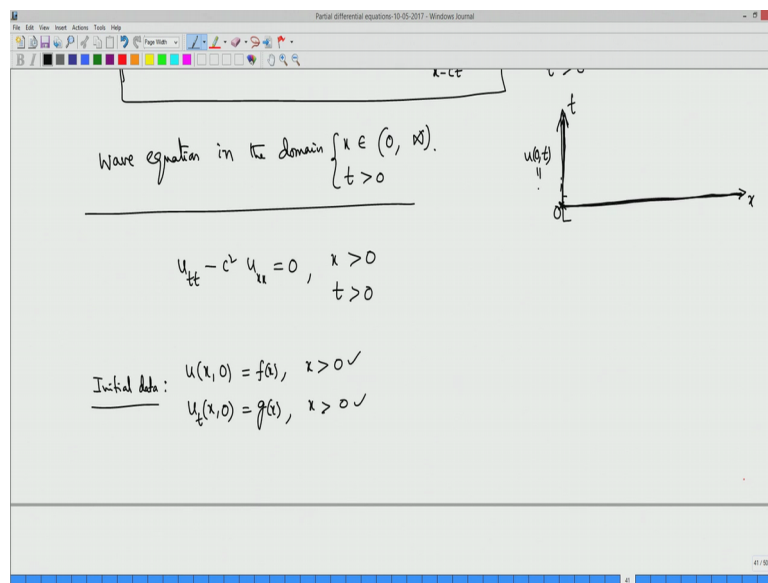 Partial differential equations-10-05-2017 - Windows Journal
File Edit View Insert Actions Tools Help
Page Width
B I
x-ct
t > 0
Wave equation in the domain { x ∈ (0, ∞).
t > 0
t
u(0,t)
"
?
0
x
u_tt - c² u_xx = 0, x > 0
t > 0
Initial data: u(x,0) = f(x), x > 0 ✓
u_t(x,0) = g(x), x > 0 ✓
41 / 50
41